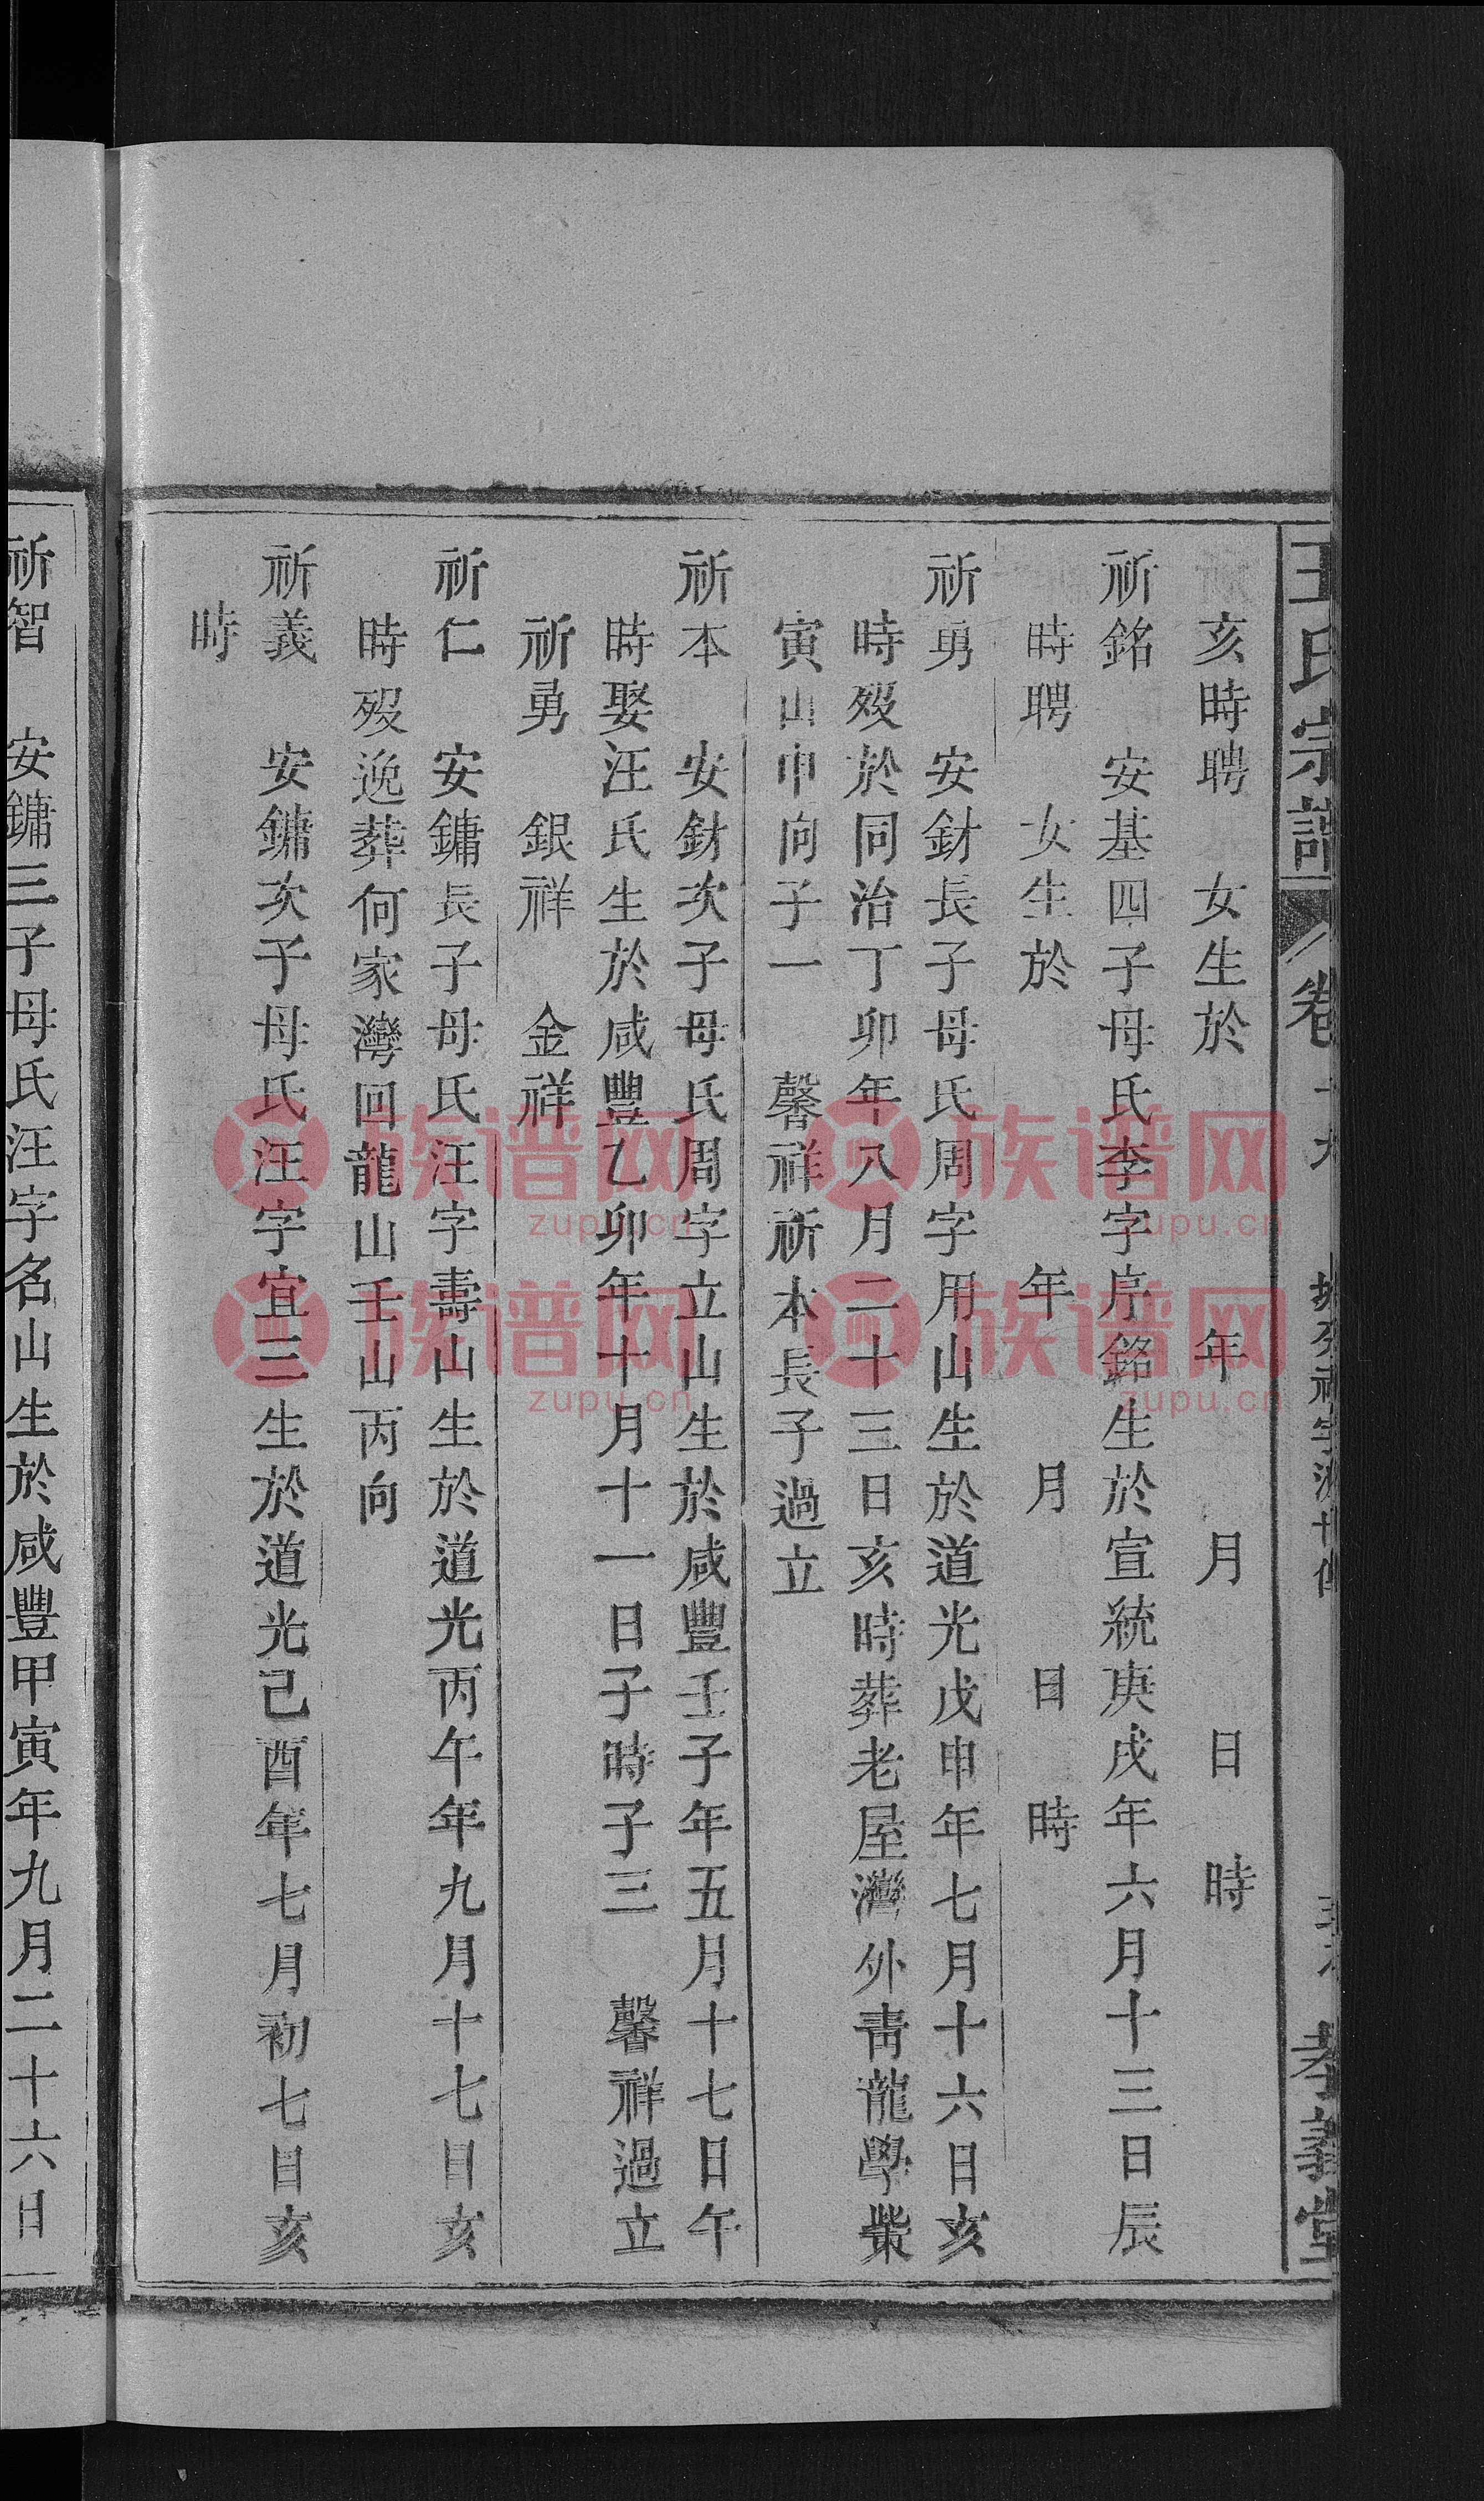 王氏宗譜
卷
孝義堂
亥時聘 女生於 年 月 日 時
祈銘 安基四子母氏李字序銘生於宣統庚戌年六月十三日辰
時聘 女生於 年 月 日 時
祈勇 安財長子母氏周字用山生於道光戊申年七月十六日亥
時歿於同治丁卯年八月二十三日亥時葬老屋灣外青龍學業
寅山申向子一 馨祥祈本長子過立
祈本 安財次子母氏周字立山生於咸豐壬子年五月十七日午
時娶汪氏生於咸豐乙卯年十月十一日子時子三 馨祥過立
祈勇 銀祥 金祥
祈仁 安鏞長子母氏汪字壽山生於道光丙午年九月十七日亥
時歿逸葬何家灣回龍山壬山丙向
祈義 安鏞次子母氏汪字宜三生於道光己酉年七月初七日亥
時
祈智 安鏞三子母氏汪字名山生於咸豐甲寅年九月二十六日
族谱网 族谱网
zupu.cn zupu.cn
族谱网 族谱网
zupu.cn zupu.cn